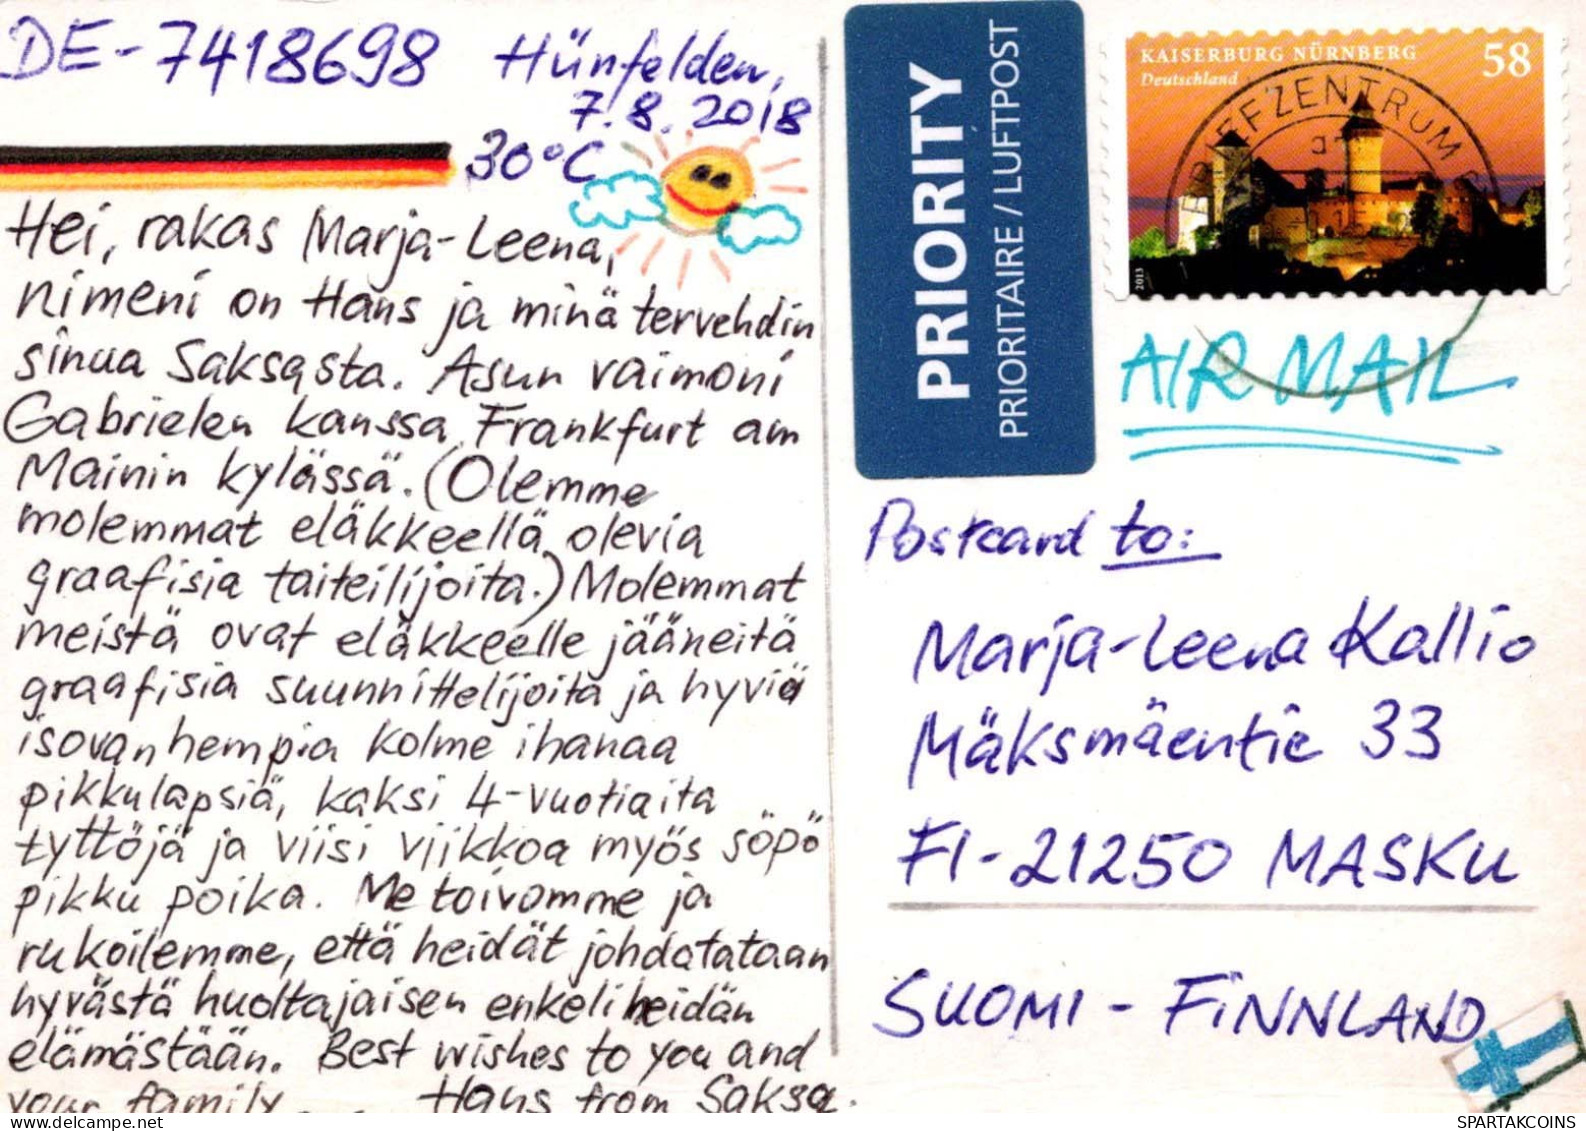 DE-7418698 Hünfelden,
7.8.2018
30°C
Hei, rakas Marja-Leena,
nimeni on Hans ja minä tervehdin
sinua Saksasta. Asun vaimoni
Gabrielen kanssa Frankfurt am
Mainin kylässä. (Olemme
molemmat eläkkeellä olevia
graafisia taiteilijoita.) Molemmat
meistä ovat eläkkeelle jääneitä
graafisia suunnittelijoita ja hyviä
isovanhempia kolme ihanaa
pikkulapsiä, kaksi 4-vuotiaita
tyttöjä ja viisi viikkoa myös söpö
pikku poika. Me toivomme ja
rukoilemme, että heidät johdatataan
hyvästä huoltajaisen enkeli heidän
elämästään. Best wishes to you and
your family Hans from Saksa.
PRIORITY
PRIORITAIRE / LUFTPOST
KAISERBURG NÜRNBERG 58
Deutschland
2013
BRIEFZENTRUM
AIR MAIL
Postcard to:
Marja-Leena Kallio
Mäksmäentie 33
FI-21250 MASKU
SUOMI - FiNNLAND
SPARTAKCOINS